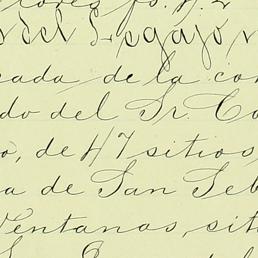 del Legajo
cada de la con
do del Sr. Co
o, de 47 sitios
a de San Seb
Ventanas, sit